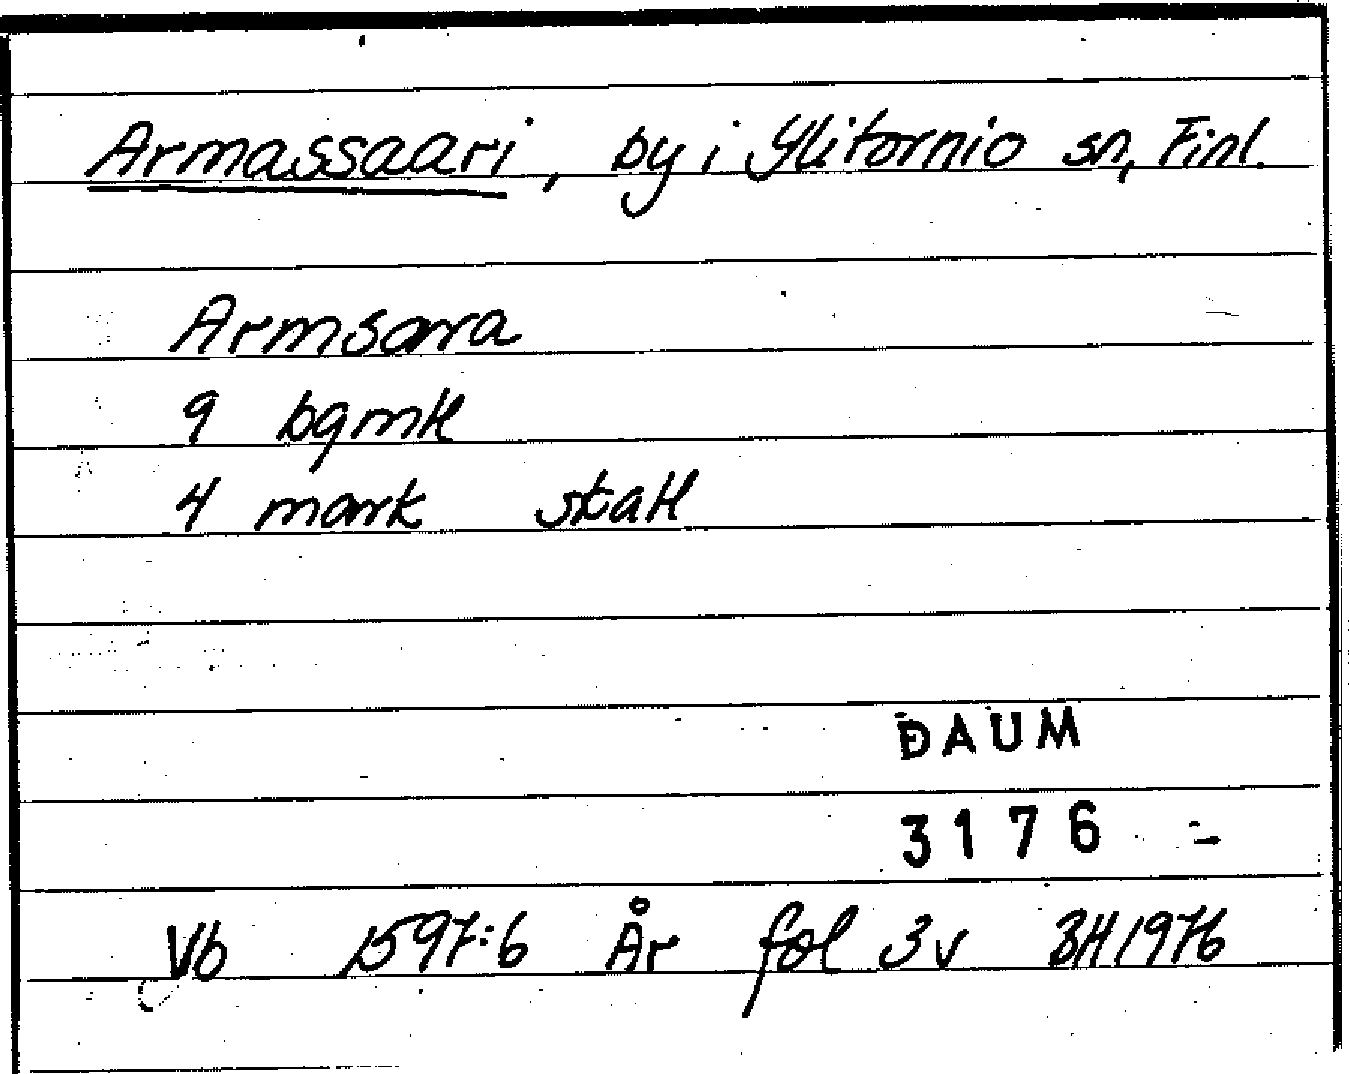 Armassaari, by i Ylitornio sn, Finl.
Armsarra
9 bgmk
4 mark skatt
DAUM
3176
Vb 1597:6 År fol 3v BH 1976